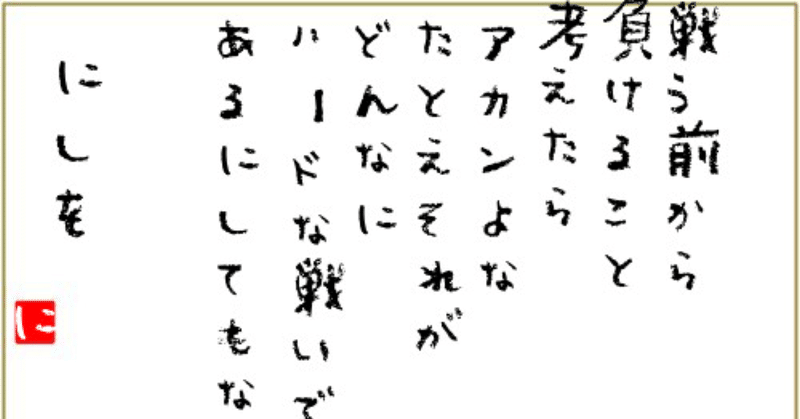 戦う前から
負けること
考えたら
アカンよな
たとえそれが
どんなに
ハードな戦いで
あるにしてもな
にしを
に